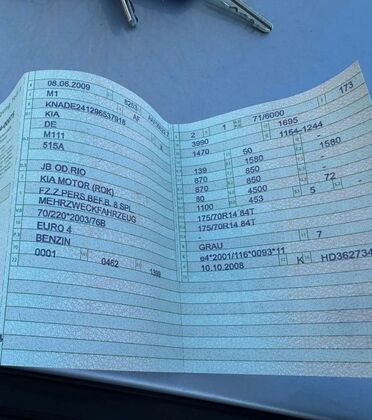 08.06.2009 8253
M1 AF
KNADE241296537918
KIA
DE
M111
515A
JB OD.RIO
KIA MOTOR (ROK)
FZ.Z.PERS.BEF.B. 8 SPL
MEHRZWECKFAHRZEUG
70/220*2003/76B
EURO 4
BENZIN
0001 0462 1399
2 1 71/6000 173
3990 1695
1470 50 1154-1244 -
139 1580 - 1580
870 850 -
870 850 72 -
80 4500 5
1100 453
175/70R14 84T
175/70R14 84T
GRAU 7
e4*2001/116*0093*11
10.10.2008 K HD362734